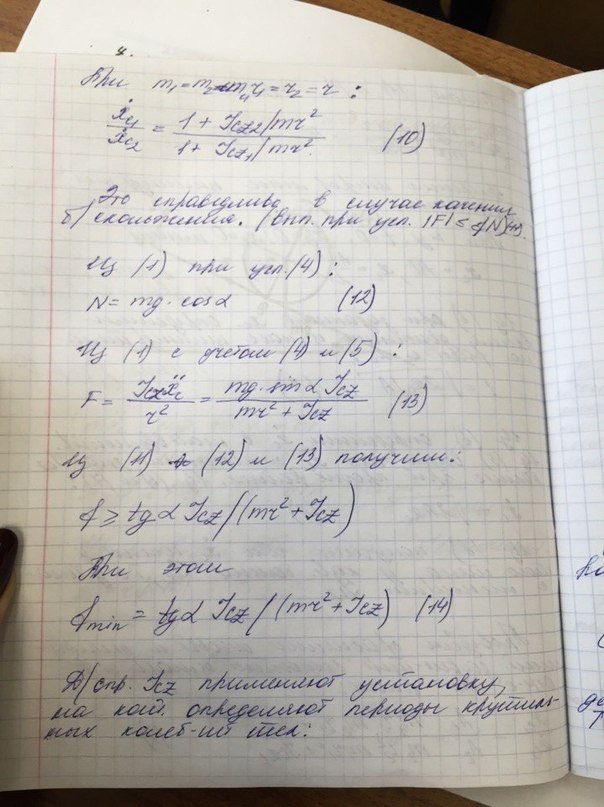 При m₁ = m₂ = m и r₁ = r₂ = r :
ẋc₁/ẋc₂ = (1 + Jcz₂/mr²)/(1 + Jcz₁/mr²) (10)
Это справедливо в случае качения
б/скольжения. (вып. при усл. |F| ≤ f|N|) (11).
Из (1) при усл. (4) :
N = mg · cos α (12)
Из (1) с учетом (4) и (5) :
F = Jcz ẍc/r² = mg · sin α Jcz/(mr² + Jcz) (13)
Из (11) (12) и (13) получим:
f ≥ tg α Jcz/(mr² + Jcz)
При этом
fmin = tg α Jcz/(mr² + Jcz) (14)
Д/опр. Jcz применяют установку,
на кот. определяют периоды крутиль-
ных колеб-ий тел: